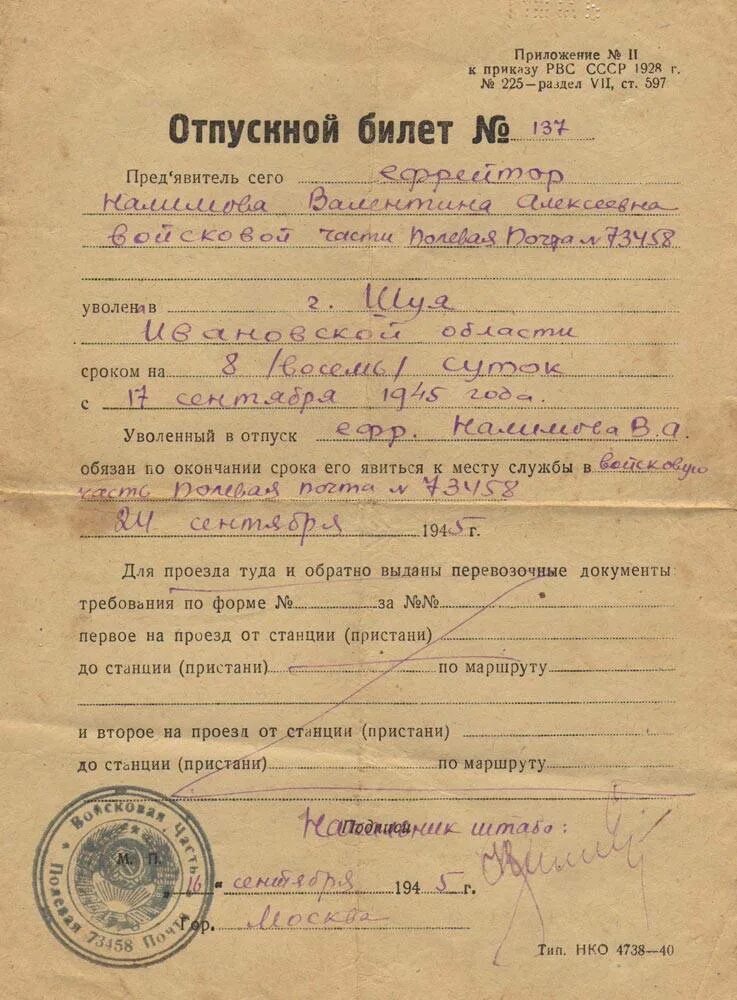 Приложение № 11
к приказу РВС СССР 1928 г.
№ 225—раздел VII, ст. 597
Отпускной билет № 137
Пред'явитель сего ефрейтор
Налимова Валентина Алексеевна
войсковой части Полевая Почта N 73458
уволен в г. Шуя
Ивановской области
сроком на 8 /восемь/ суток
с 17 сентября 1945 года.
Уволенный в отпуск ефр. Налимова В.А.
обязан по окончании срока его явиться к месту службы в войсковую
часть Полевая почта N 73458
24 сентября 1945 г.
Для проезда туда и обратно выданы перевозочные документы:
требования по форме № за №№
первое на проезд от станции (пристани)
до станции (пристани) по маршруту
и второе на проезд от станции (пристани)
до станции (пристани) по маршруту
Подписи
Начальник штаба:
Войсковая Часть
Полевая 73458 Почта
М. П.
"16" сентября 1945 г.
Гор. Москва
Тип. НКО 4738—40